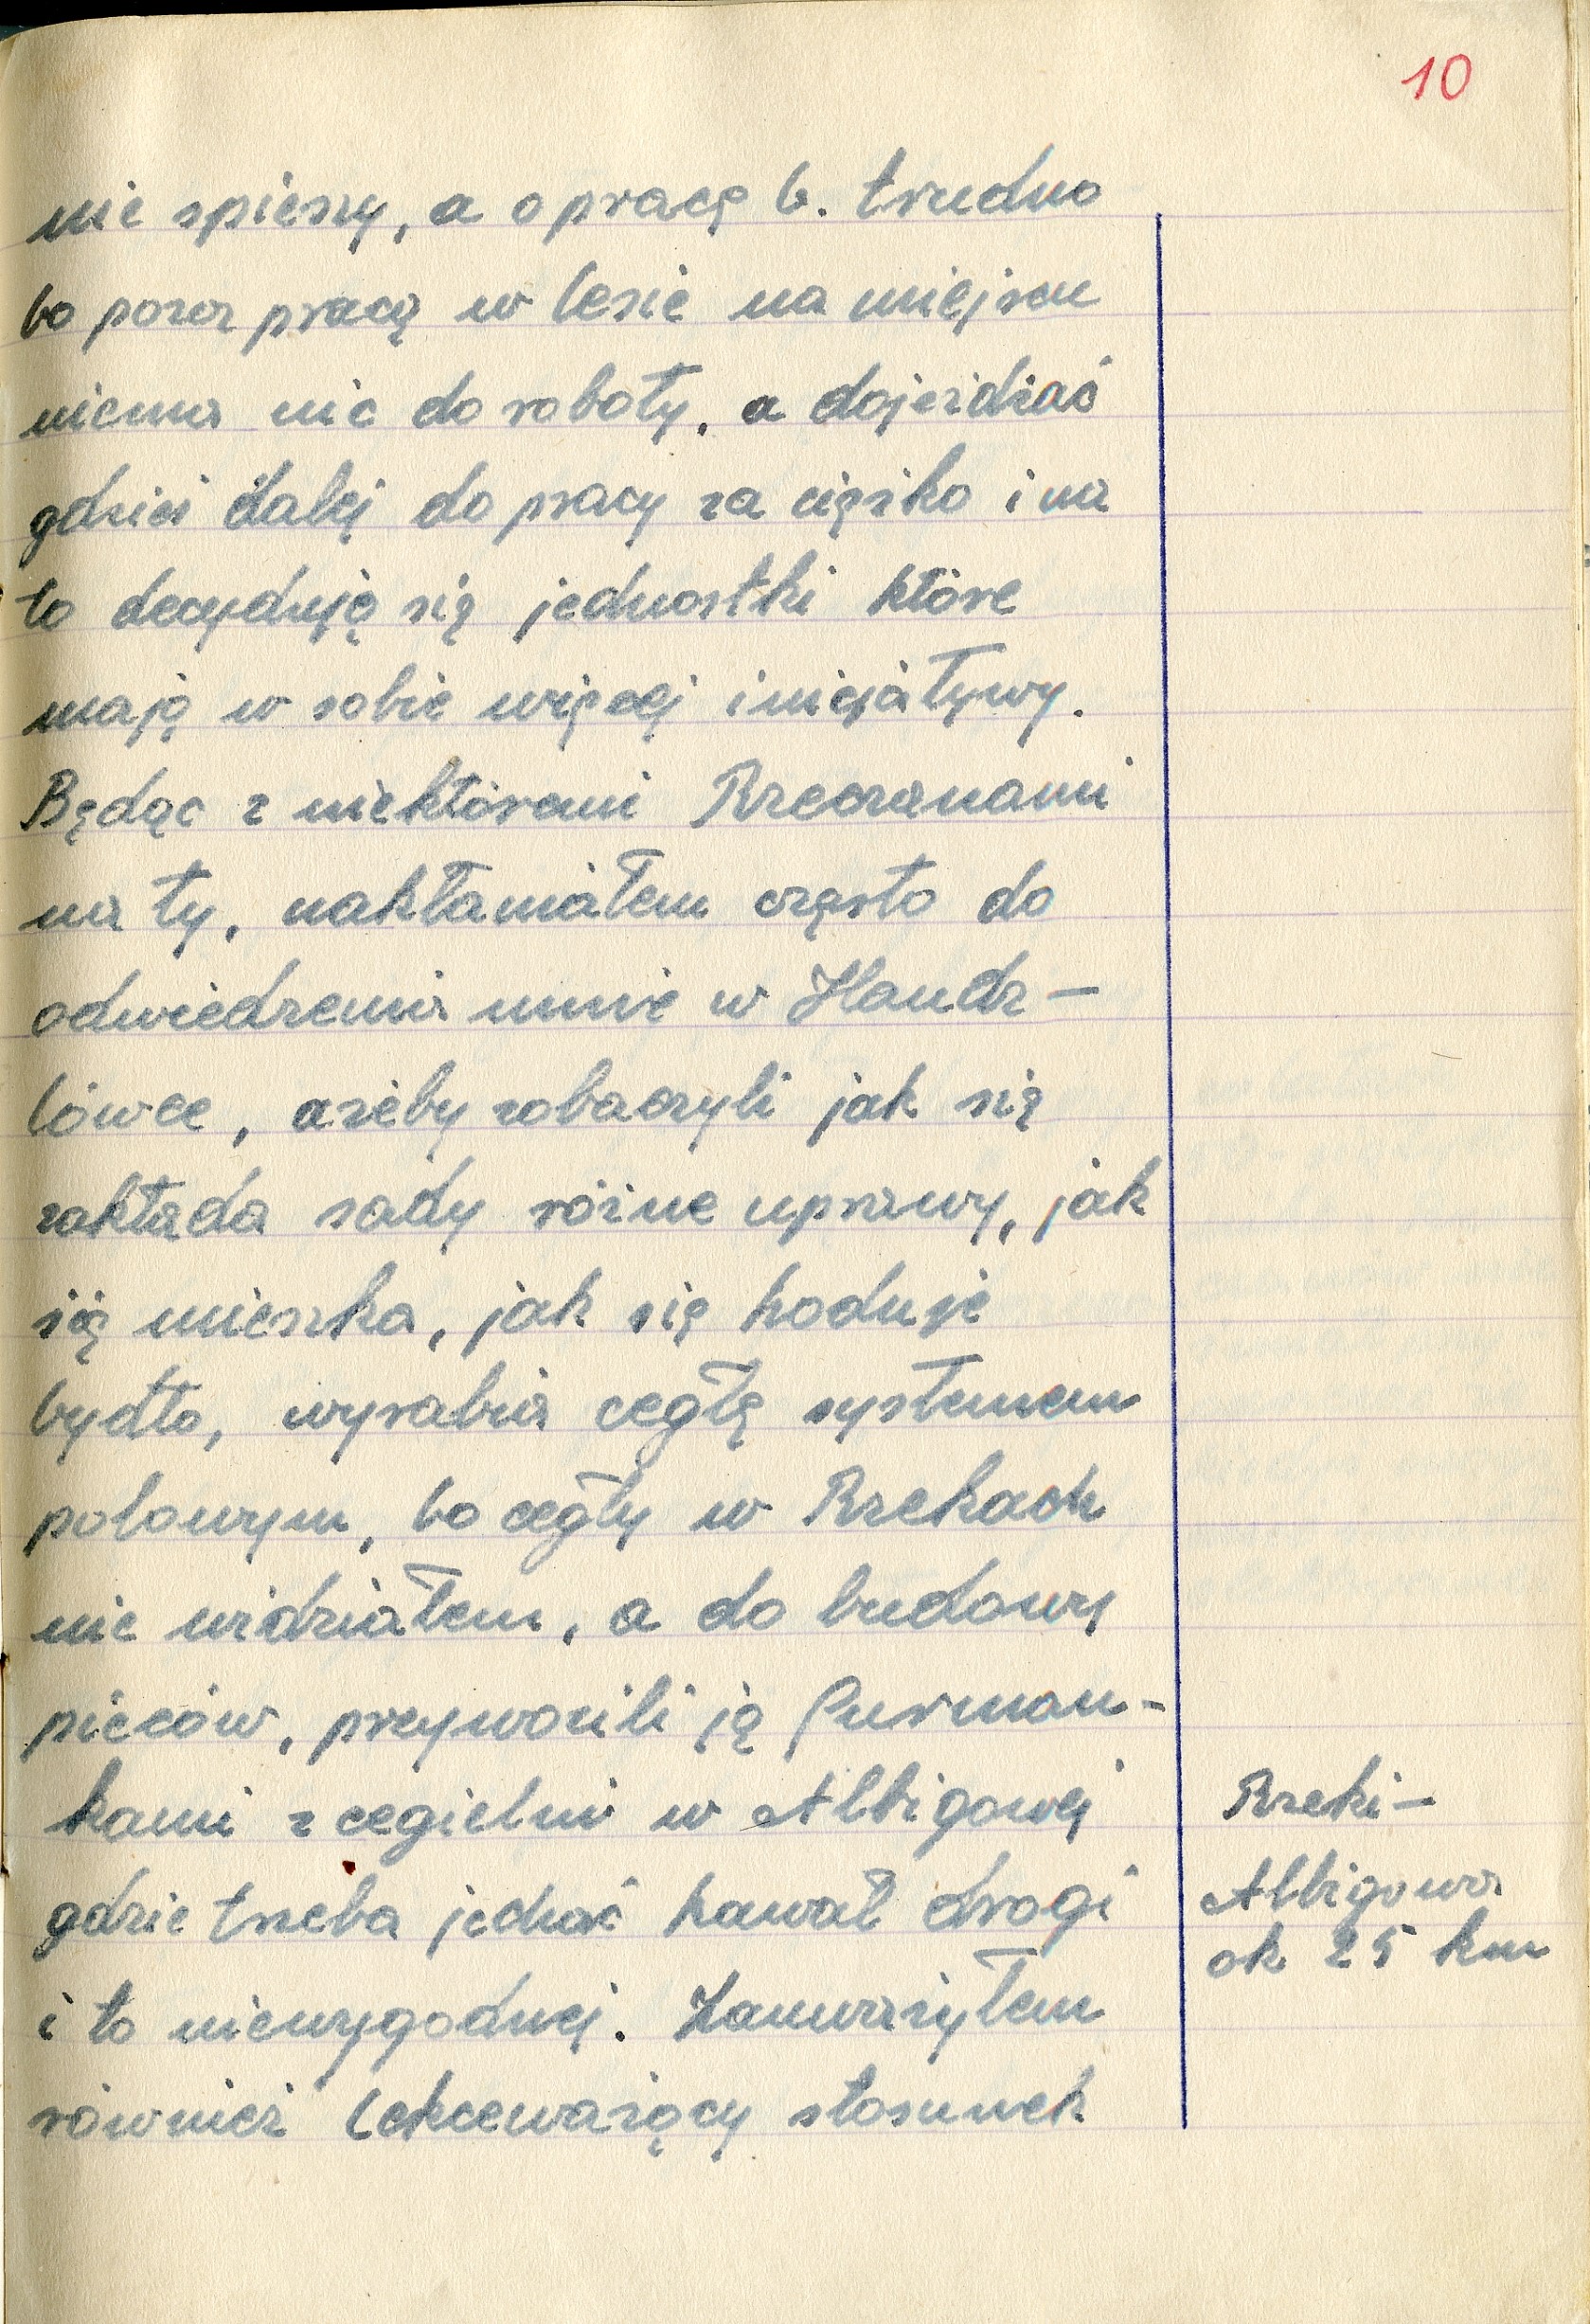 10
nie spieszy, a o pracę b. trudno
bo poza pracą w lesie na miejscu
niema nic do roboty, a dojeżdżać
gdzieś dalej do pracy za ciężko i na
to decydują się jednostki które
mają w sobie więcej inicjatywy.
Będąc z niektóremi Rzeczanami
na ty, nakłaniałem często do
odwiedzenia mnie w Handz-
lówce, ażeby zobaczyli jak się
zakłada sady różne uprawy, jak
się mieszka, jak się hoduje
bydło, wyrabia cegłę systemem
polowym, bo cegły w Rzekach
nie widziałem, a do budowy
pieców, przywozili ją furman-
kami z cegielni w Albigowej
gdzie trzeba jechać kawał drogi
i to niewygodnej. Zauważyłem
również lekceważący stosunek
Rzeki-
Albigowa
ok 25 km